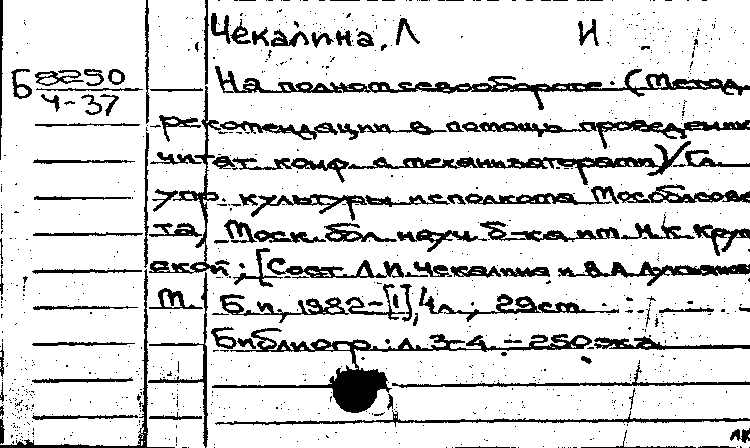 Чекалина, Л И
Б 8250
Ч-37
На полном севообороте. (Метод.
рекомендации в помощь проведению
читат. конф. с механизаторами)/Гл.
упр. культуры исполкома Мособлсове
та, Моск. обл. науч. б-ка им. Н.К. Круп
ской; [Сост. Л.И. Чекалина и В.А.
М.: Б.и., 1982-[1], 4л.; 29см.
Библиогр.: л. 3-4. - 250экз.